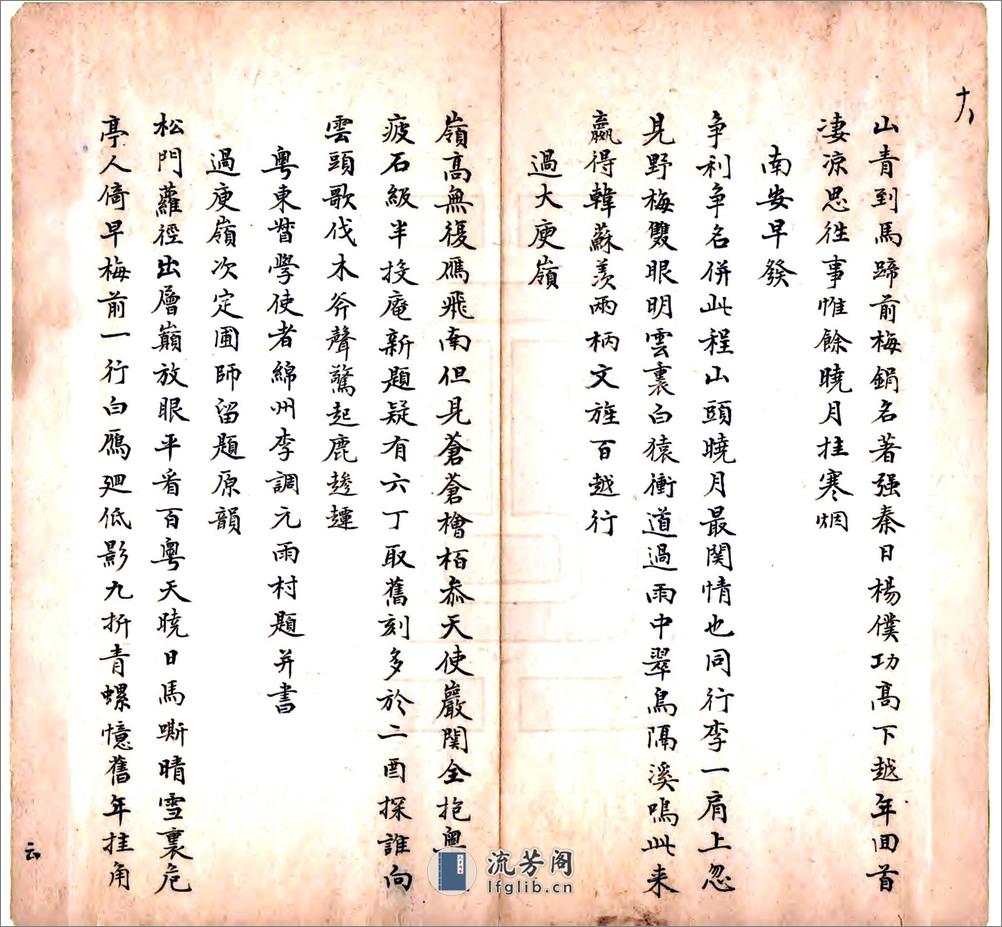 十八
山青到馬蹄前梅鋗名著强秦日楊僕功高下越年回首
凄凉思徃事惟餘曉月挂寒烟
南安早發
争利争名併此程山頭曉月最関情也同行李一肩上忽
見野梅雙眼明雲裏白猿衝道過雨中翠鳥隔溪鳴此来
贏得韓蘇羡兩柄文旌百越行
過大庾嶺
嶺高無復鴈飛南但見蒼蒼檜栢叅天使嚴関全抱粤
疲石級半投庵新題疑有六丁取舊刻多於二酉探誰向
雲頭歌伐木斧聲驚起鹿
粤東督學使者綿州李調元雨村題并書
過庾嶺次定圃師留題原韻
松門蘿徑出層巔放眼平看百粤天曉日馬嘶晴雪裏危
亭人倚早梅前一行白鴈廻低影九折青螺憶舊年挂角
云
流芳阁
lfglib.cn